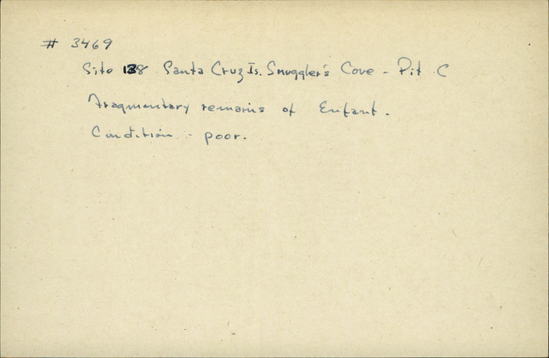 # 3469
Site 138 Santa Cruz Is. Smuggler's Cove - Pit C
Fragmentary remains of Enfant.
Condition - poor.